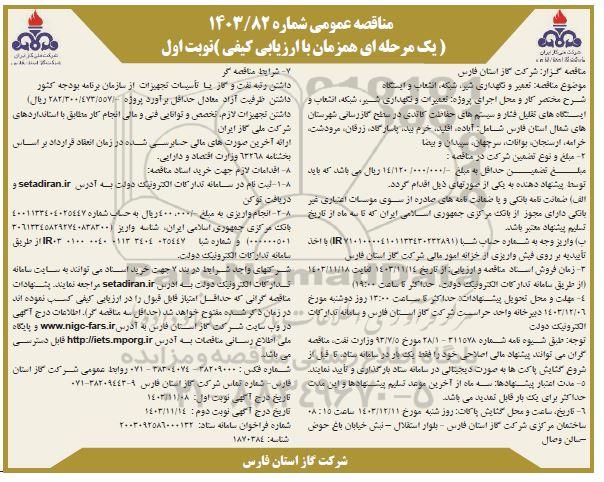 مناقصه عمومی شماره ۱۴۰۳/۸۲
( یک مرحله ای همزمان با ارزیابی کیفی )نوبت اول
شرکت ملی گاز ایران
شرکت گاز استان فارس
مناقصه گزار: شرکت گاز استان فارس
موضوع مناقصه: تعمیر و نگهداری شیر، شبکه، انشعاب و ایستگاه
شرح مختصر کار و محل اجرای پروژه: تعمیرات و نگهداری شیر، شبکه، انشعاب و
ایستگاه های تقلیل فشار و سیستم های حفاظت کاتدی در سطح گازرسانی شهرستان
های شمال استان فارس شامل: آباده، اقلید، خرم بید، پاسارگاد، زرقان، مرودشت،
خرامه، ارسنجان، بوانات، سرچهان، سپیدان و بیضا
۲- مبلغ و نوع تضمین شرکت در مناقصه :
مبلغ تضمین حداقل به مبلغ -/۱۴/۱۲۰/۰۰۰/۰۰۰ ریال می باشد که باید
توسط پیشنهاد دهنده به یکی از صورتهای ذیل اقدام گردد.
الف) ضمانت نامه بانکی و یا ضمانت نامه های صادره از سوی موسسات اعتباری غیر
بانکی دارای مجوز از بانک مرکزی جمهوری اسلامی ایران که تا سه ماه از تاریخ
تسلیم پیشنهاد معتبر باشد.
ب) واریز وجه به شماره حساب شبا (IR۷۱۰۱۰۰۰۰۴۱۰۱۱۳۳۴۳۰۲۳۲۸۹۱) با اخذ
تأییدیه بر روی فیش واریزی از خزانه امور مالی شرکت گاز استان فارس
۳- زمان فروش اسناد مناقصه و ارزیابی: از تاریخ ۱۴۰۳/۱۱/۱۴ لغایت ۱۴۰۳/۱۱/۱۸
(از طریق سامانه تدارکات الکترونیک دولت، حداکثر تا ساعت ۱۹:۰۰)
۴- مهلت و محل تحویل پیشنهادات: حداکثر تا ساعت ۱۳:۰۰ روز دوشنبه مورخ
۱۴۰۳/۱۲/۰۶ دبیرخانه واحد حراست شرکت گاز استان فارس و سامانه تدارکات
الکترونیک دولت
توجه: طبق شیوه نامه شماره ۳۱۱۵۷۸ - ۲۸/۱ مورخ ۹۳/۷/۵ وزارت نفت، مناقصه
گران می توانند پیشنهاد مالی اصلاحی خود را فقط یک بار در سامانه ستاد، تا قبل از
شروع گشایش پاکت ها به صورت دیجیتالی در سامانه ستاد بارگذاری و تأیید نمایند.
۵- مدت اعتبار پیشنهادها: سه ماه از آخرین موعد تسلیم پیشنهادها و این مدت
حداکثر برای یک بار قابل تمدید می باشد.
۶- تاریخ، ساعت و محل گشایش پاکات: روز شنبه مورخ ۱۴۰۳/۱۲/۱۱ ساعت ۱۵ : ۰۸
ساختمان مرکزی شرکت گاز استان فارس - بلوار استقلال – نبش خیابان باغ حوض
–سالن وصال
۷- شرایط مناقصه گر
داشتن رتبه نفت و گاز یا تأسیسات تجهیزات از سازمان برنامه بودجه کشور
داشتن ظرفیت آزاد معادل حداقل برآورد پروژه (۲۸۲/۳۰۰/۴۷۳/۵۵۷/- ریال)
داشتن تجهیزات لازم، تخصص و توانایی فنی و مالی انجام کار مطابق با استانداردهای
شرکت ملی گاز ایران
ارائه آخرین صورت های مالی حسابرسی شده در زمان انعقاد قرارداد بر اساس
بخشنامه ۶۳۲۶۸ وزارت اقتصاد و دارایی.
۸- اقدامات لازم جهت خرید اسناد مناقصه:
۸-۱-ثبت نام در سامانه تدارکات الکترونیک دولت به آدرس setadiran.ir و
دریافت توکن
۸-۲- انجام واریزی به مبلغ -/۴۰۰،۰۰۰ریال به حساب شماره ۴۰۰۱۱۳۳۴۰۴۰۲۵۴۴۷
بانک مرکزی جمهوری اسلامی ایران، شناسه واریز (۳۰۶۱۳۳۴۵۸۲۹۲۷۴۰۸۳۸۳۰۰
۰۰۰۰۰۰۵۰۱) و شماره شبا IR۰۳ ۰۱۰۰ ۰۰۴۰ ۰۱۱۳ ۳۴۰۴ ۰۲۵۴۴۷ از طریق
سامانه تدارکات الکترونیک دولت.
شرکتهای واجد شرایط در بند ۷ جهت خرید اسناد می توانند به سایت سامانه
تدارکات الکترونیک دولت به آدرس setadiran.ir مراجعه نمایند. پیشنهادات
مناقصه گرانی که حداقل امتیاز قابل قبول را در ارزیابی کیفی کسب نموده اند
در زمان ذکر شده مفتوح خواهد شد(حداقل سه مناقصه گر). اطلاعات درج آگهی
در وب سایت شرکت گاز استان فارس به آدرس www.nigc-fars.ir و پایگاه
ملی اطلاع رسانی مناقصات به آدرس http://iets.mporg.ir قابل دسترسی
می باشد.
شماره فکس : ۳۸۲۰۹۰۰۰ – ۳۸۳۰۴۰۷۴ - ۰۷۱ روابط عمومی شرکت گاز استان
فارس- شماره تماس شرکت گاز استان فارس ۹-۳۸۲۰۹۴۴۳-۰۷۱
تاریخ درج آگهی نوبت اول: ۱۴۰۳/۱۱/۰۸
تاریخ درج آگهی نوبت دوم : ۱۴۰۳/۱۱/۱۴
شماره فراخوان سامانه ستاد: ۲۰۰۳۰۹۲۵۸۶۰۰۰۱۳۲
شناسه: ۱۸۷۰۳۸۴
شرکت گاز استان فارس